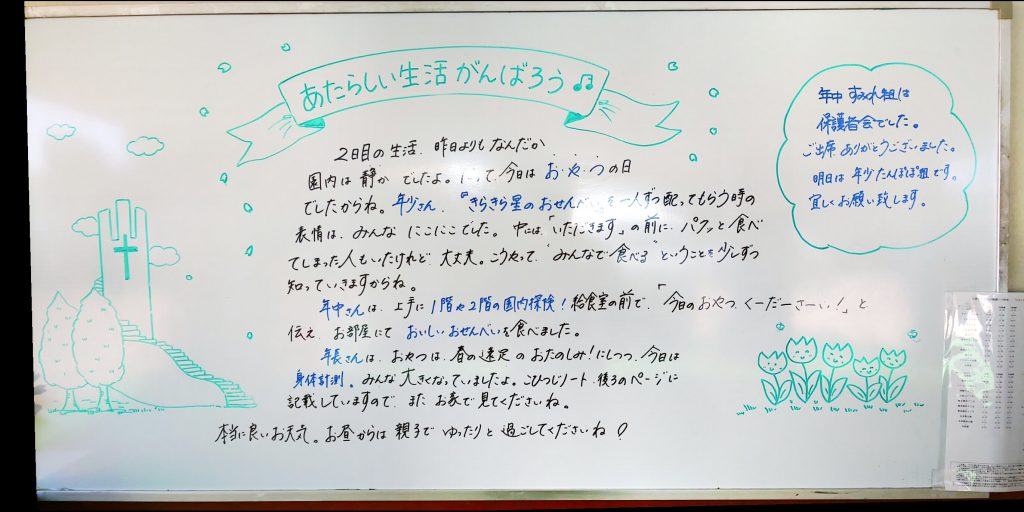 あたらしい生活がんばろう♫
2日目の生活、昨日よりもなんだか
園内は静かでしたよ。 て、今日はお・や・つの日
でしたからね。年少さん、『きらきら星のおせんべい』を一人ずつ配ってもらう時の
表情は、みんなにこにこでした。中には、「いただきます」の前に、パクッと食べ
てしまった人もいたけれど、大丈夫。こうやって、“みんなで食べる”ということを少しずつ
知っていきますからね。
年中さんは、上手に1階や2階の園内探検！給食室の前で、「今日のおやつ、くーだーさーい！」と
伝え、お部屋にておいしいおせんべいを食べました。
年長さんは、おやつは、春の遠足のおたのしみ！にしつつ、今日は
身体計測。みんな大きくなっていましたよ。こひつじノート、後ろのページに
記載していますので、またお家で見てくださいね。
本当に良いお天気。お昼からは親子でゆったりと過ごしてくださいね♡
年中すみれ組は
保護者会でした。
ご出席ありがとうございました。
明日は年少たんぽぽ組です。
宜しくお願い致します。